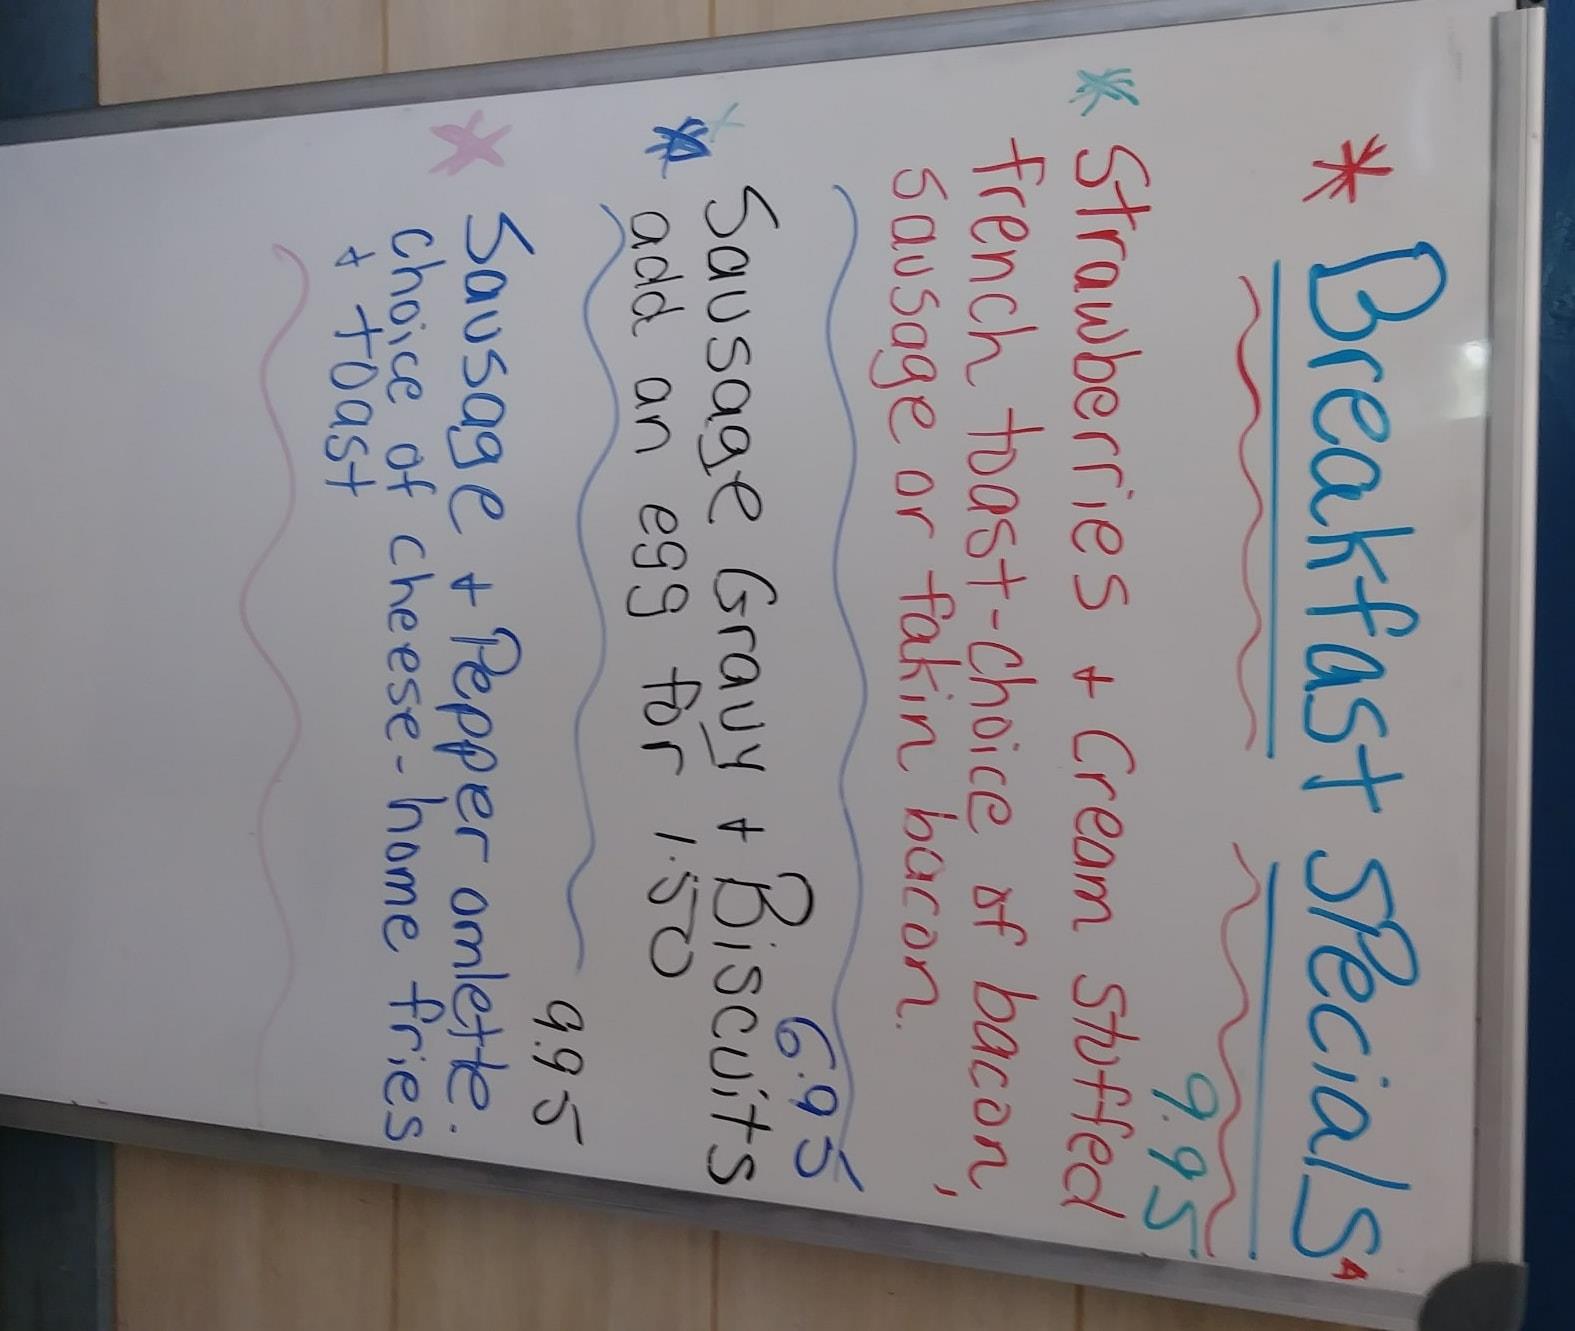 * Breakfast Specials *
9.95
* Strawberries + Cream stuffed
french toast-choice of bacon,
sausage or fakin bacon.
6.95
Sausage Gravy + Biscuits
* add an egg for 1.50
9.95
* Sausage + Pepper omlette.
choice of cheese-home fries
+ toast